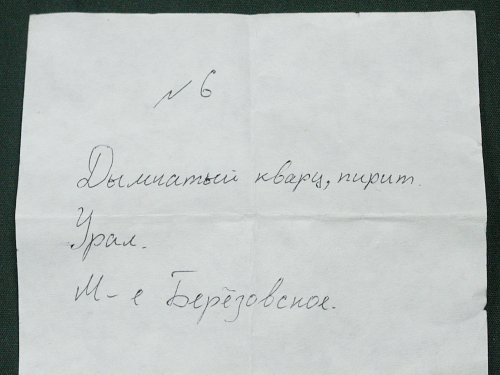 N 6
Дымчатый кварц, пирит.
Урал.
М-е Берёзовское.